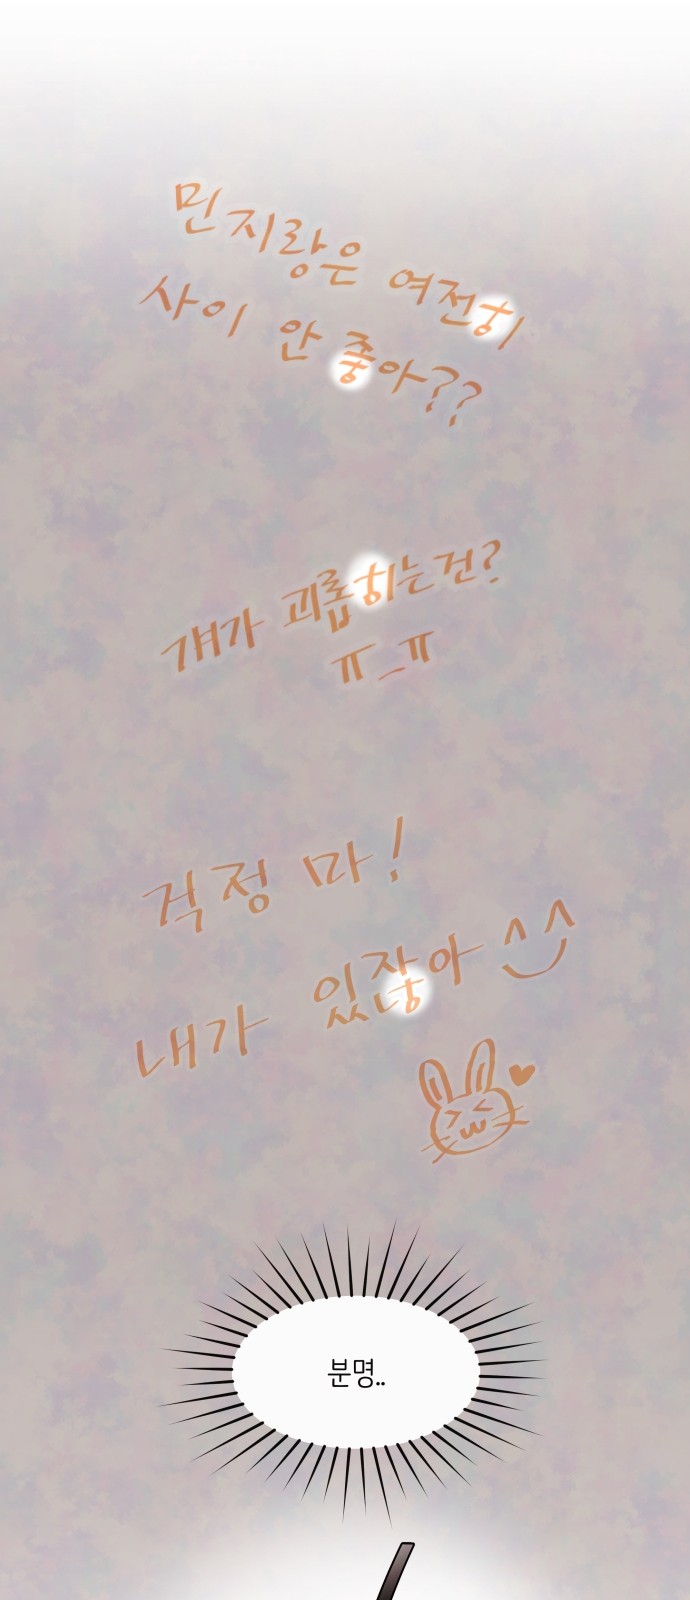 민지랑은 여전히
사이 안 좋아??
걔가 괴롭히는건?
ㅠ_ㅠ
걱정 마!
내가 있잖아 ^^
분명..